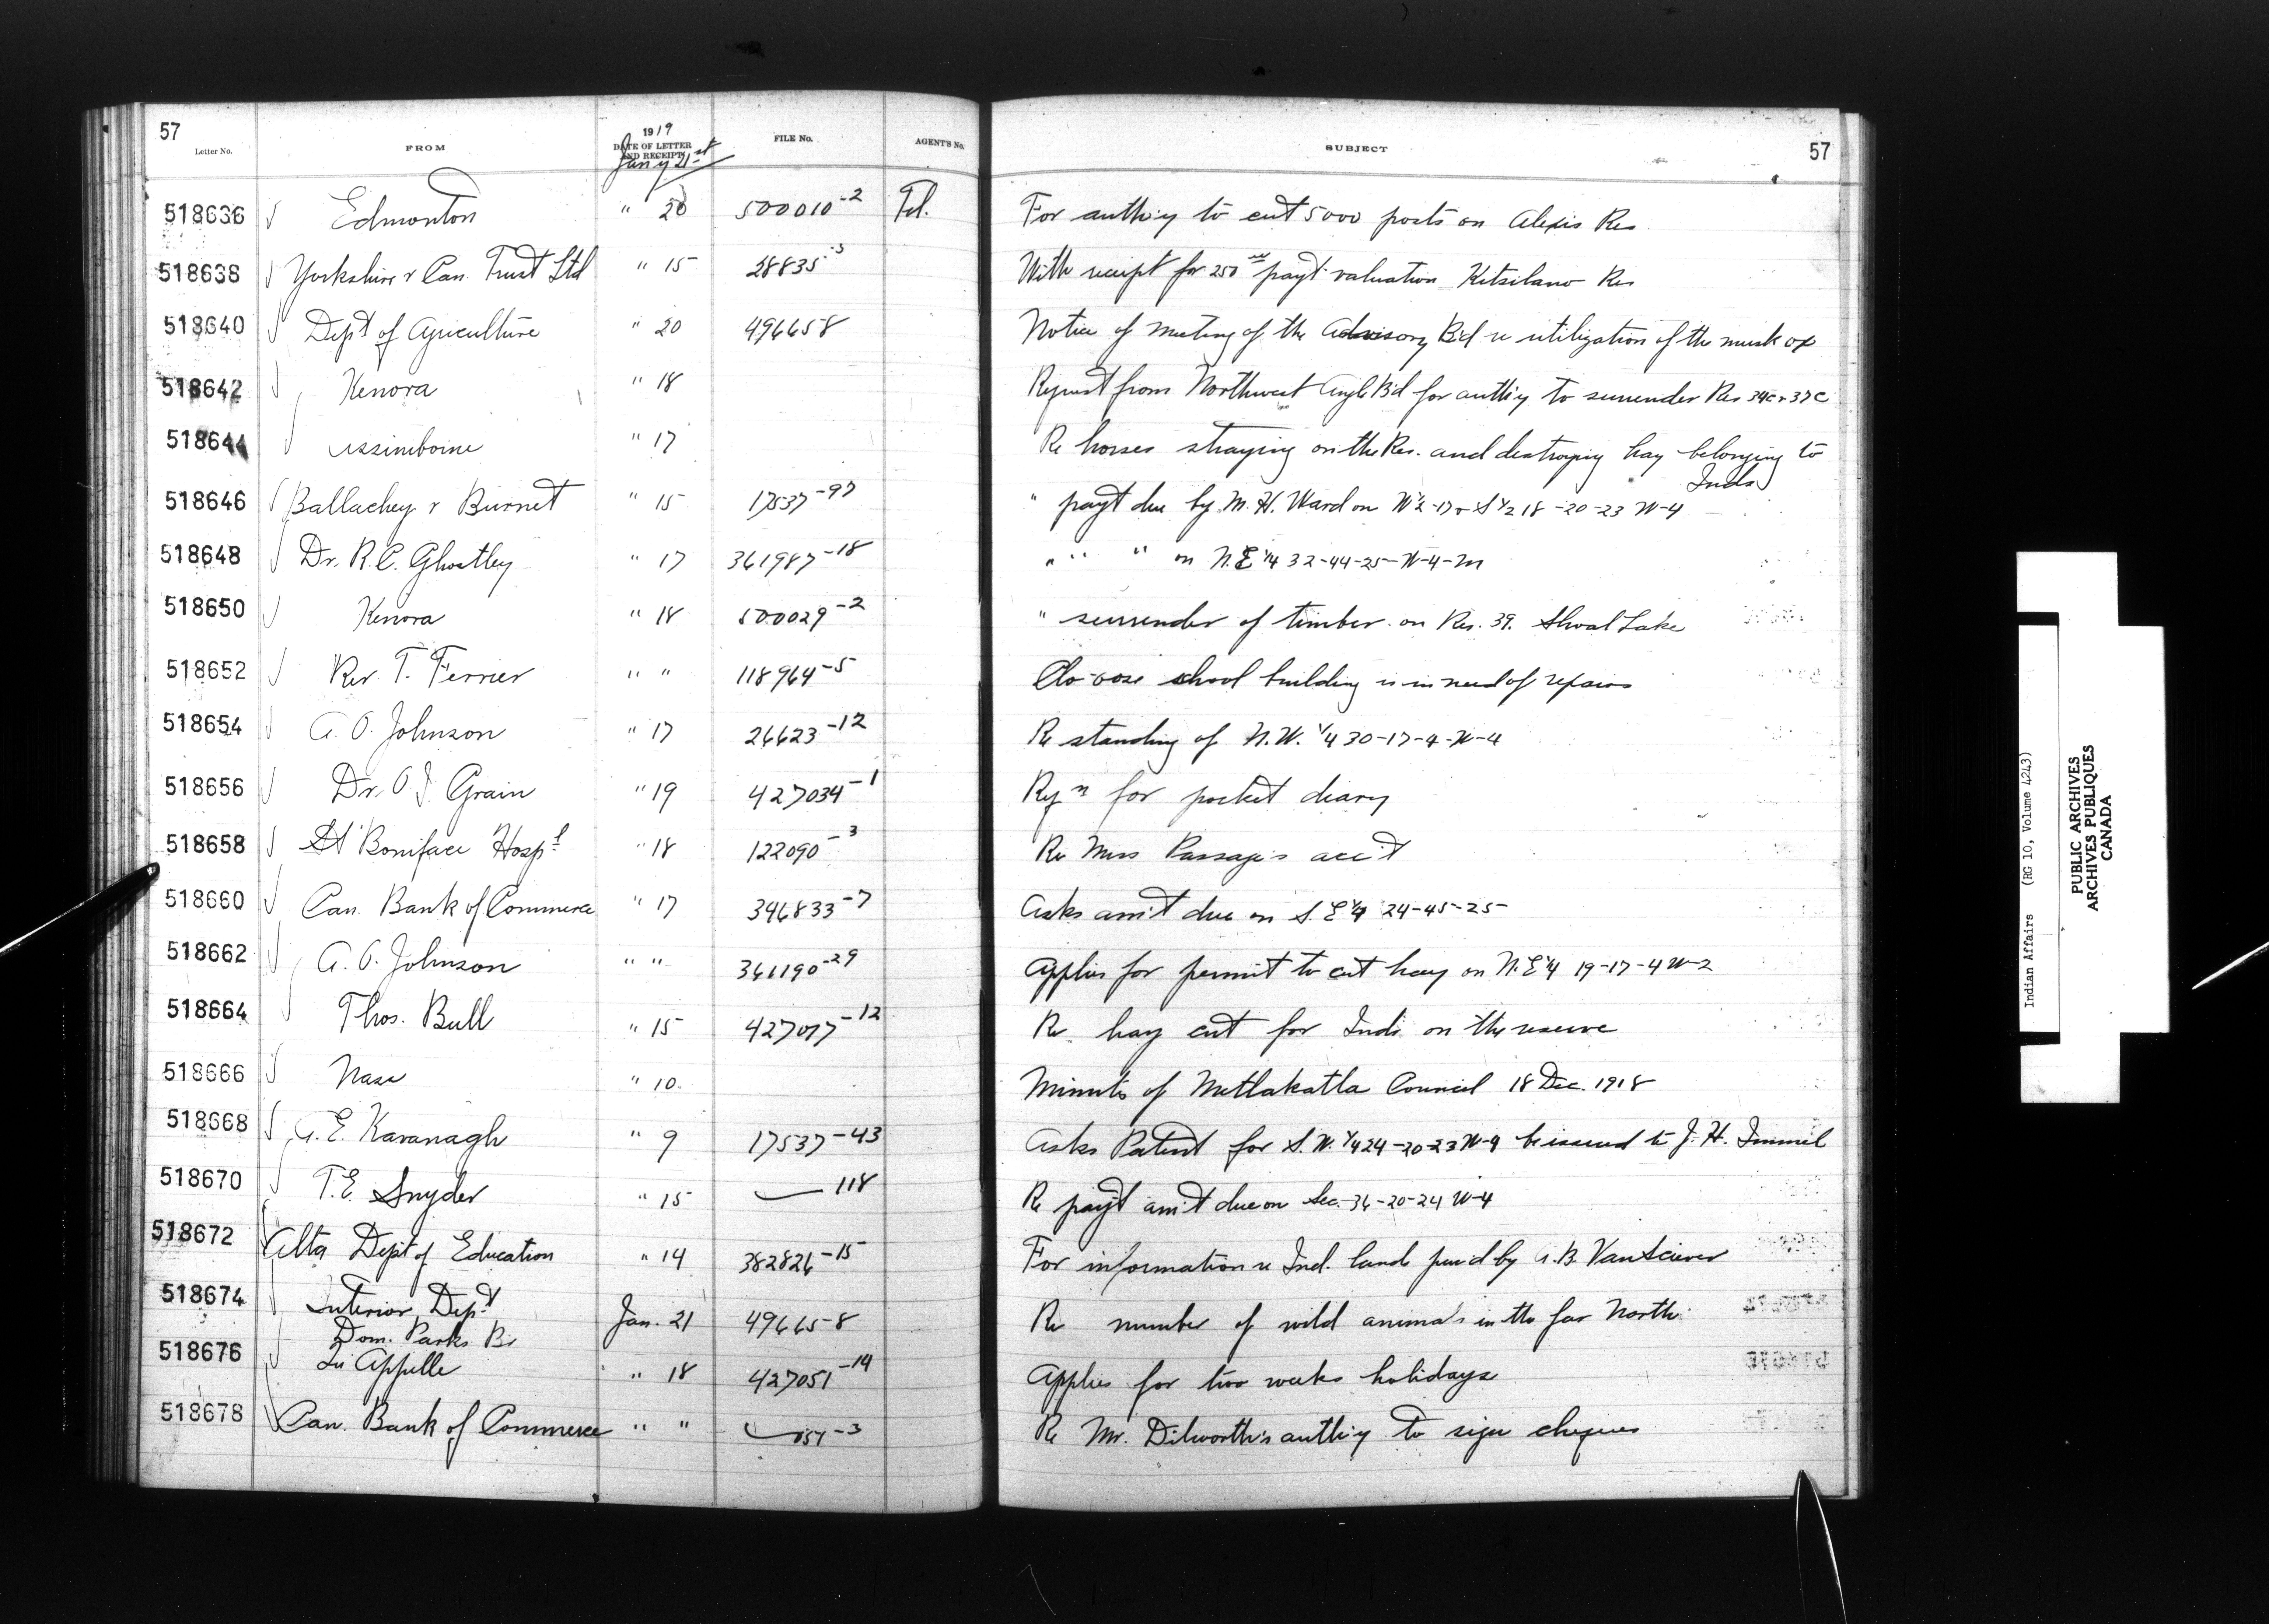 57
Letter No.
FROM
1919
DATE OF LETTER
AND RECEIPT
Jany 21st
FILE No.
AGENT'S No.
SUBJECT
57
518636 Edmonton " 20 500010-2 Tel. For auth'y to cut 5000 posts on Alexis Res
518638 Yorkshire & Can. Trust Ltd " 15 28835-3 With receipt for 250 payt valuation Kitsilano Res
518640 Dept of Agriculture " 20 496658 Notice of meeting of the Advisory B'd re utilization of the musk ox
518642 Kenora " 18 Request from Northwest Angle B'd for auth'y to surrender Res 34C & 37C
518644 Assiniboine " 17 Re horses straying on the Res. and destroying hay belonging to
Inds
518646 Ballachey & Burnet " 15 17537-97 " payt due by M. H. Ward on N½-17 & S½ 18-20-23 W-4
518648 Dr. R. C. Ghostley " 17 361987-18 " " " on N.E¼ 32-44-25-W-4-M
518650 Kenora " 18 500029-2 " surrender of timber on Res. 39. Shoal Lake
518652 Rev. T. Ferrier " " 118964-5 Clo-oose school building is in need of repairs
518654 A. O. Johnson " 17 26623-12 Re standing of N.W. ¼ 30-17-4-W-4
518656 Dr. O. I. Grain " 19 427034-1 Reqn for pocket diary
518658 St Boniface Hospl " 18 122090-3 Re Miss Passage's acc't
518660 Can. Bank of Commerce " 17 346833-7 Asks am't due on S.E¼ 24-45-25
518662 A. O. Johnson " " 361190-29 Applies for permit to cut hay on N.E¼ 19-17-4 W-2
518664 Thos. Bull " 15 427077-12 Re hay cut for Inds on the reserve
518666 Nass " 10 Minutes of Metlakatla Council 18 Dec. 1918
518668 A. E. Kavanagh " 9 17537-43 Asks Patent for S.W. ¼ 24-20-23 W-4 be issued to J. H. Immel
518670 T. E. Snyder " 15 118 Re payt am't due on Sec. 36-20-24 W-4
518672 Alta Dept of Education " 14 382826-15 For information re Ind. lands purd by A. B. VanSciever
518674 Interior Dept Jan. 21 496658 Re number of wild animals in the far North
Dom. Parks Br
518676 Qu'Appelle " 18 427051-14 Applies for two weeks holidays
518678 Can. Bank of Commerce " " 051-3 Re Mr. Dilworth's auth'y to sign cheques
Indian Affairs (RG 10, Volume 4243)
PUBLIC ARCHIVES
ARCHIVES PUBLIQUES
CANADA